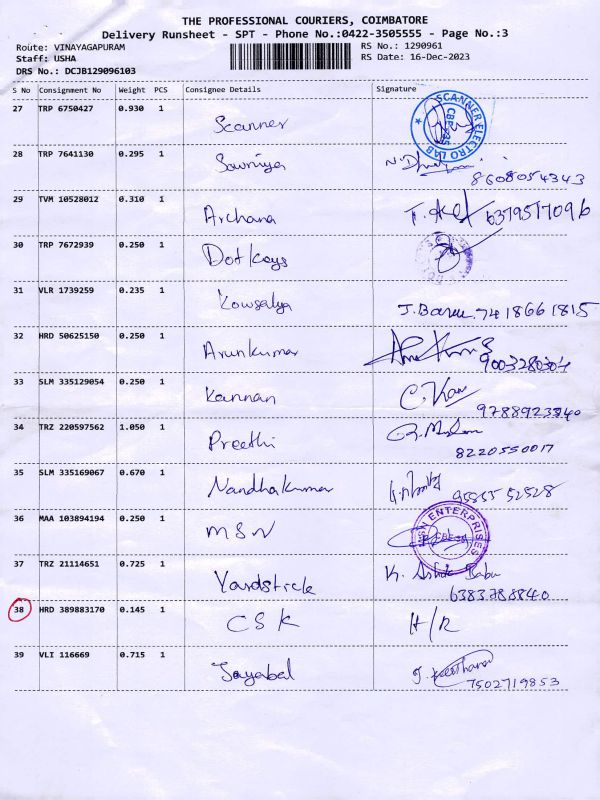 THE PROFESSIONAL COURIERS, COIMBATORE
Delivery Runsheet - SPT - Phone No.:0422-3505555 - Page No.:3
Route: VINAYAGAPURAM
RS No.: 1290961
Staff: USHA
RS Date: 16-Dec-2023
DRS No.: DCJB129096103
S No Consignment No Weight PCS Consignee Details Signature
27 TRP 6750427 0.930 1 Scanner
SCANNER ELECTRO LAB
28 TRP 7641130 0.295 1 Sowmiya
8608054343
29 TVM 10528012 0.310 1 Archana 6379517096
30 TRP 7672939 0.250 1 Dotkeys
31 VLR 1739259 0.235 1 Kowsalya 7418661815
32 HRD 50625150 0.250 1 Arunkumar
9003280304
33 SLM 335129054 0.250 1 Kannan
9788923340
34 TRZ 220597562 1.050 1 Preethi
8220550017
35 SLM 335169067 0.670 1 Nandhakumar 95855 52528
36 MAA 103894194 0.250 1 MSN ENTERPRISES
37 TRZ 21114651 0.725 1 Yardstick K. Ashok Babu
6383788840
38 HRD 389883170 0.145 1 CSK H/R
39 VLI 116669 0.715 1 Jayabal
7502719853